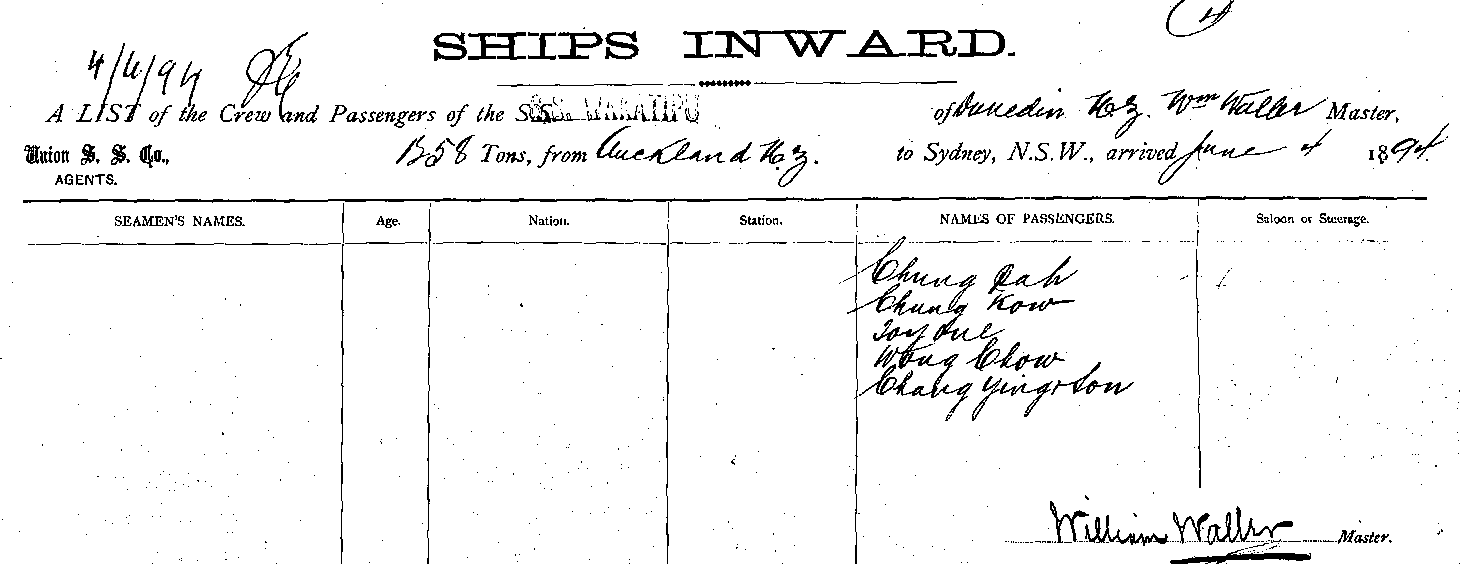 4
SHIPS INWARD.
4/6/94
A LIST of the Crew and Passengers of the S.S. WAKATIPU of Dunedin N.Z. Wm Waller Master,
Union S. S. Co., 1258 Tons, from Auckland N.Z. to Sydney, N.S.W., arrived June 4 1894.
AGENTS.
SEAMEN'S NAMES. Age. Nation. Station. NAMES OF PASSENGERS. Saloon or Steerage.
Chung Dah
Chung Kow
Joy One
Wong Chow
Chang Ying & Son
William Waller Master.